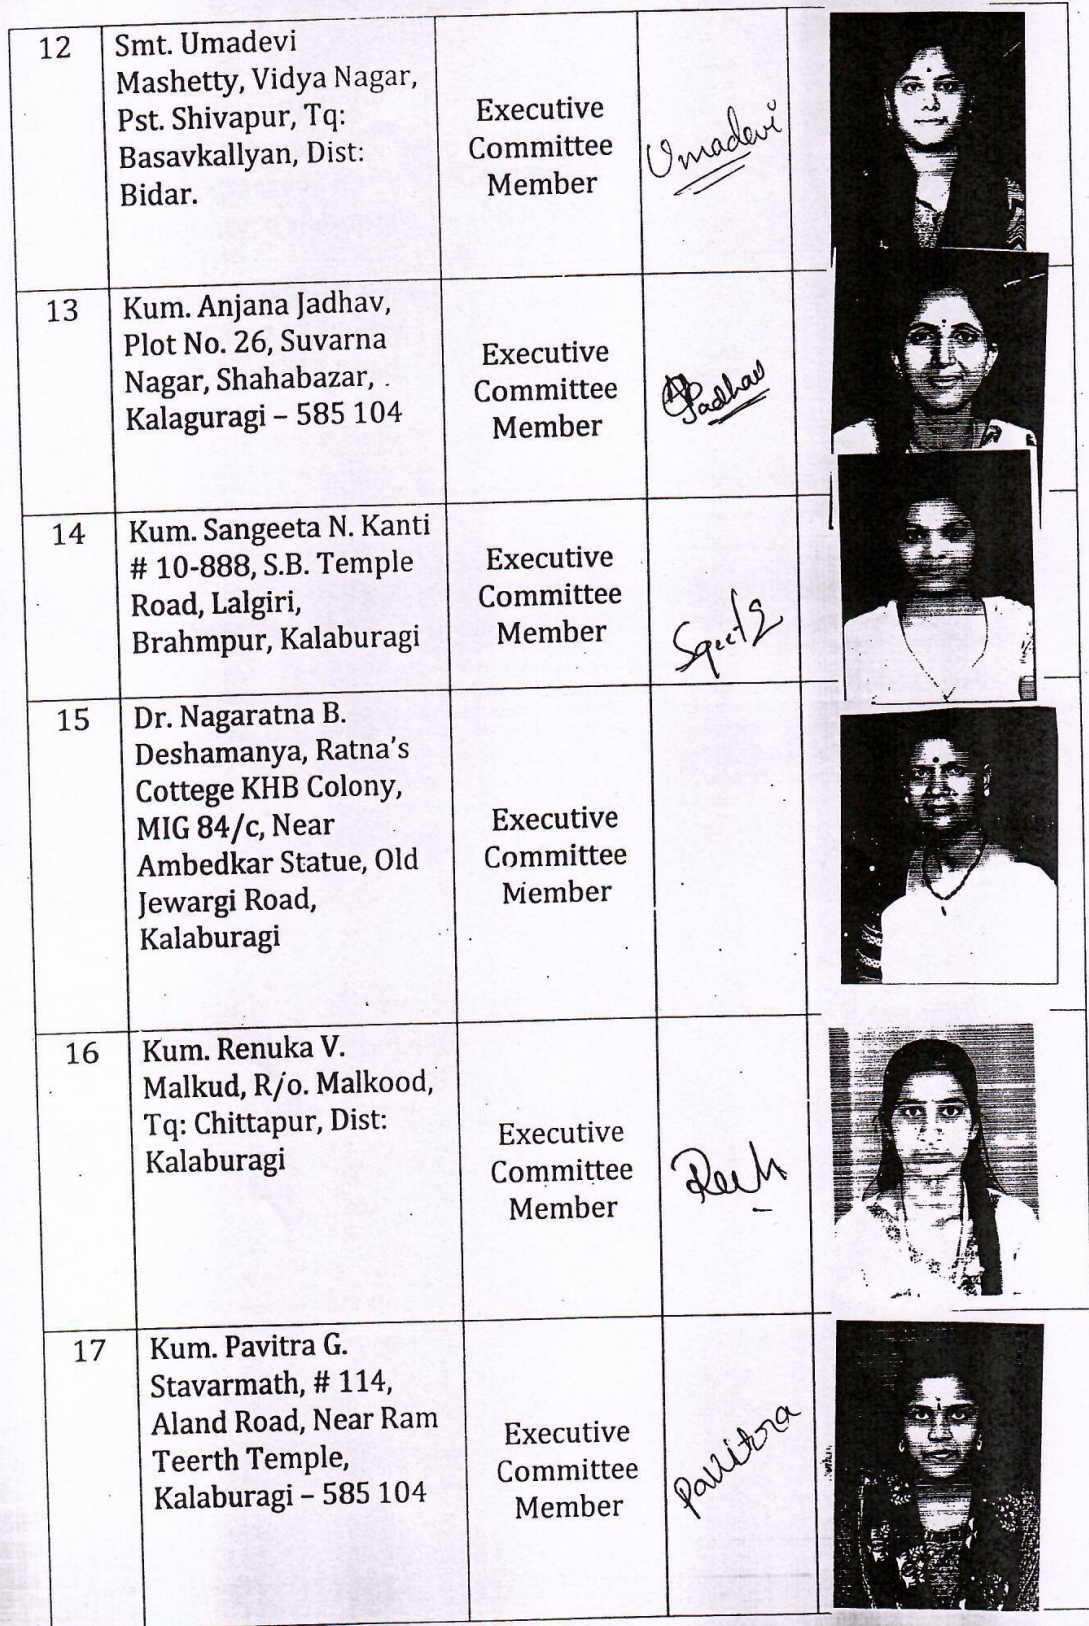 12
Smt. Umadevi
Mashetty, Vidya Nagar,
Pst. Shivapur, Tq:
Basavkallyan, Dist:
Bidar.
Executive
Committee
Member
Umadevi
13
Kum. Anjana Jadhav,
Plot No. 26, Suvarna
Nagar, Shahabazar,
Kalaguragi – 585 104
Executive
Committee
Member
14
Kum. Sangeeta N. Kanti
# 10-888, S.B. Temple
Road, Lalgiri,
Brahmpur, Kalaburagi
Executive
Committee
Member
15
Dr. Nagaratna B.
Deshamanya, Ratna's
Cottege KHB Colony,
MIG 84/c, Near
Ambedkar Statue, Old
Jewargi Road,
Kalaburagi
Executive
Committee
Member
16
Kum. Renuka V.
Malkud, R/o. Malkood,
Tq: Chittapur, Dist:
Kalaburagi
Executive
Committee
Member
17
Kum. Pavitra G.
Stavarmath, # 114,
Aland Road, Near Ram
Teerth Temple,
Kalaburagi – 585 104
Executive
Committee
Member
Pavitra